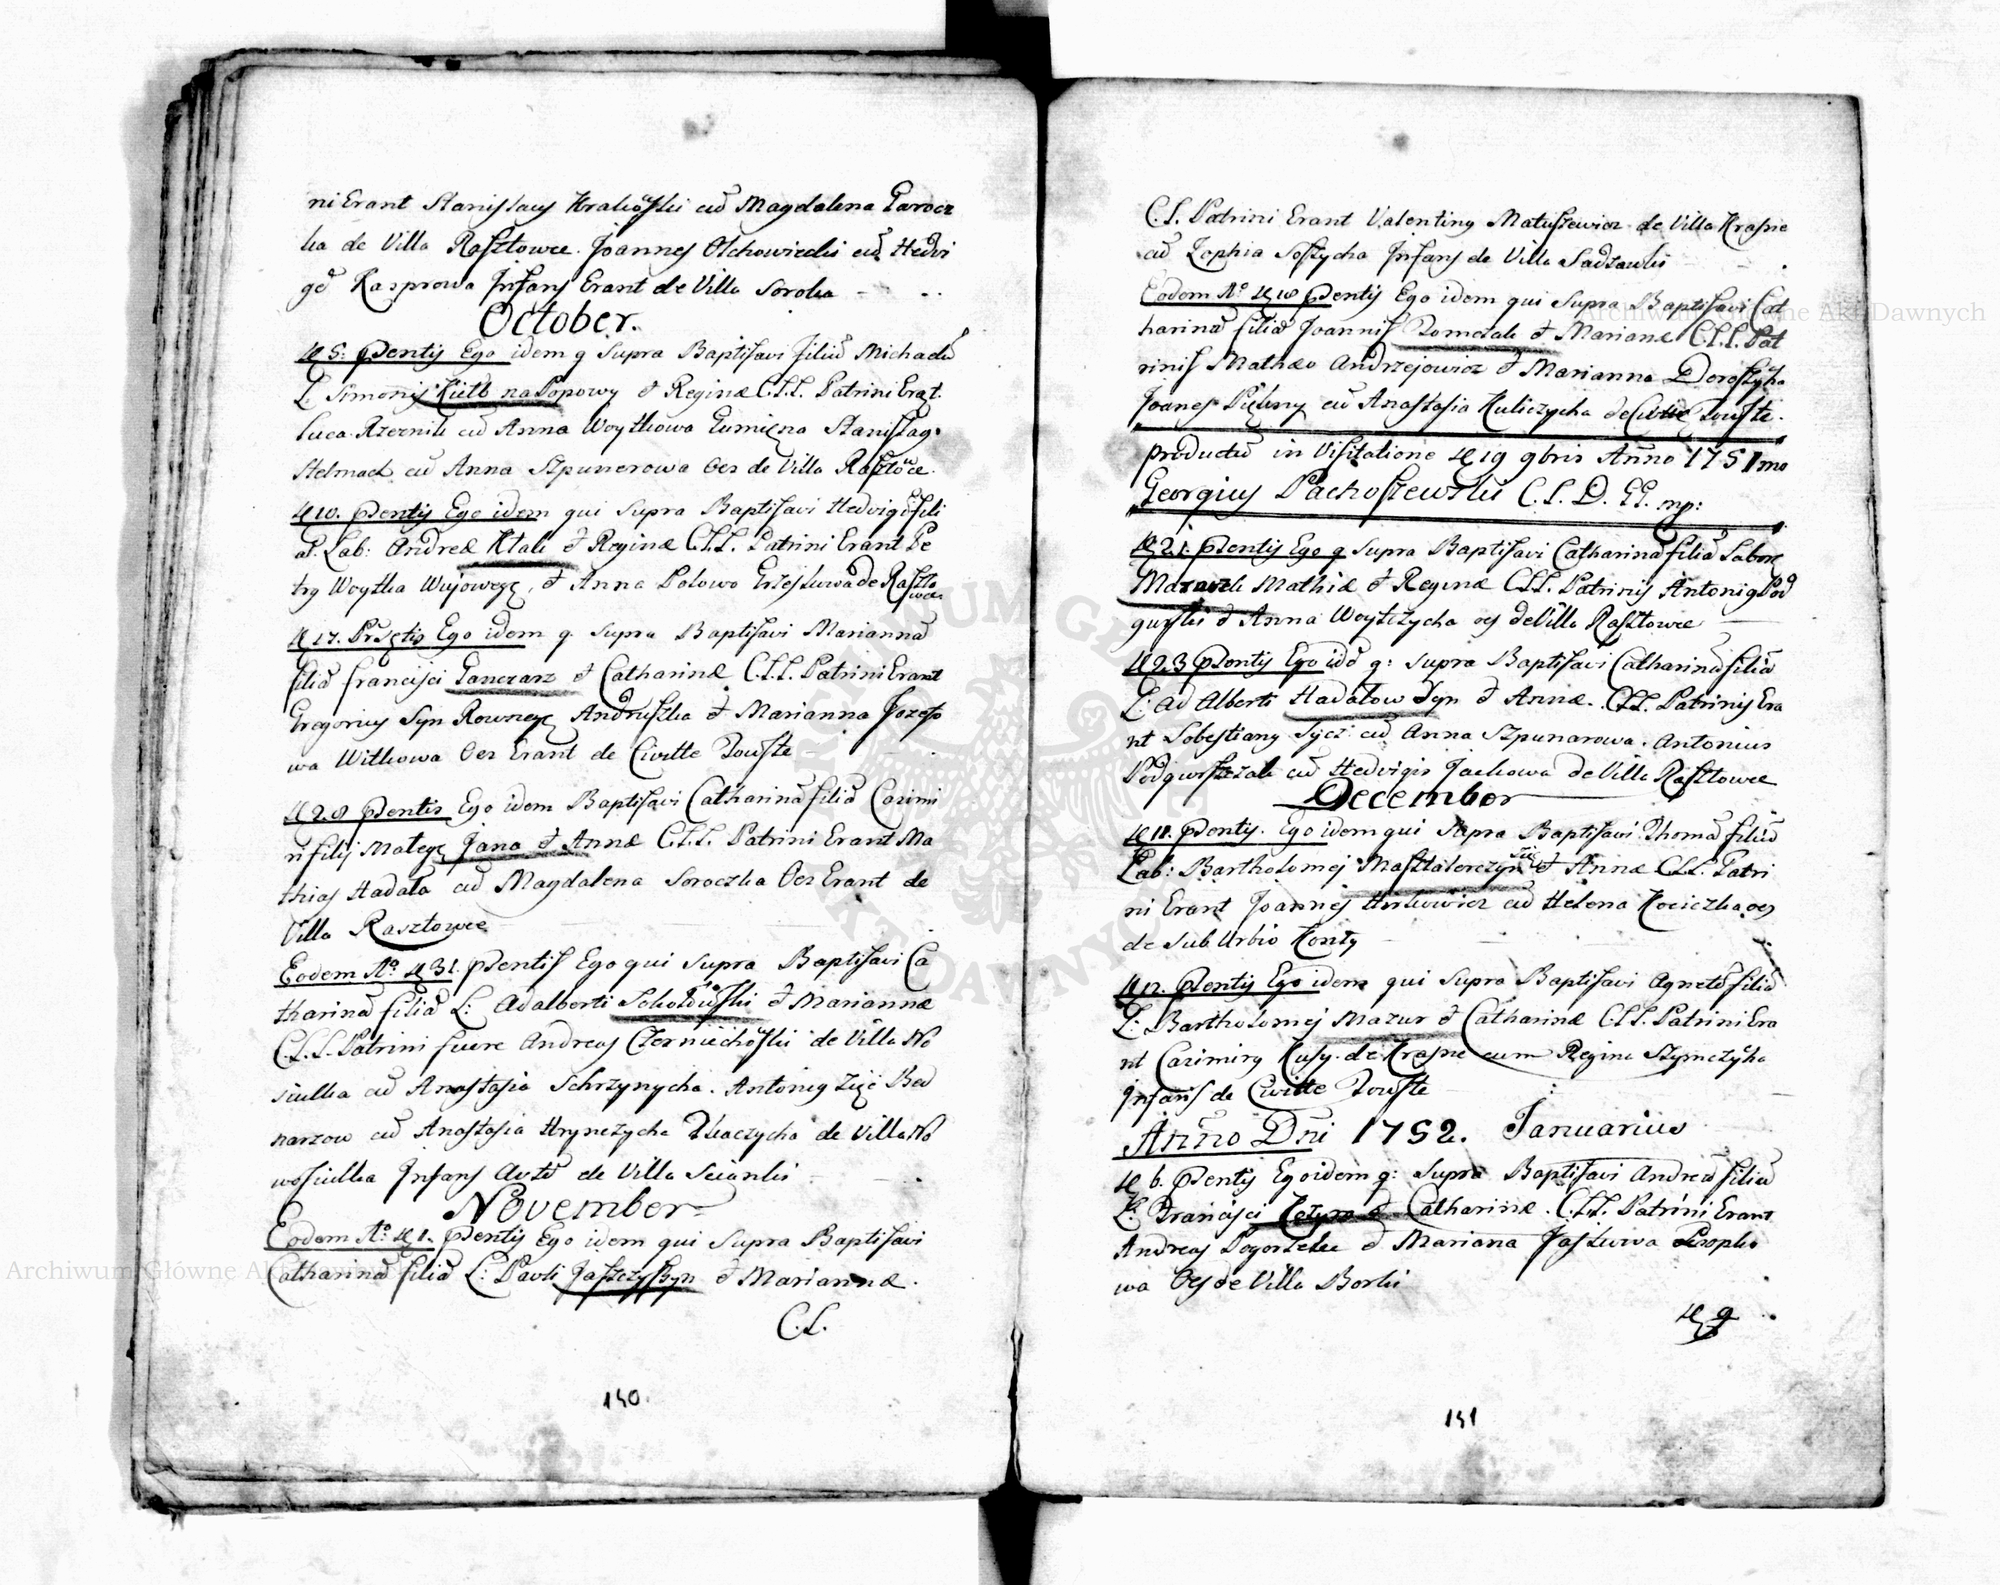 ni Erant Stanislaus Krakoski cū Magdalena Garocz
ka de Villa Rasztowce. Joannes Olchowiecki cū Hedvi
gē Kasprowa Infans Erant de Villa Soroka
October.
5. Pentis Ego idem q Supra Baptisavi filiū Michaelē
L. Simonis na Popowy et Reginæ C.L.L. Patrini Erāt.
Luca Rzeznik cū Anna Woytkowa Stanislag
Stelmach cū Anna Szpunerowa Oes de Villa Rasztowce.
10. Pentis Ego idem qui Supra Baptisavi Hedvigē fili
a. Lab: Andreæ Ktak et Reginæ C.L.L. Patrini Erant Pe
try Woytka et Anna Polowo de Raszto
wce.
17. Ego idem q. Supra Baptisavi Mariannā
filiā Francisci Ganczarz et Catharinæ C.L.L. Patrini Erant
Gregorius Syn Rownege Andruszka et Marianna Jozefo
wa Witkowa Oes Erant de Civitte Touste
28 Pentis Ego idem Baptisavi Catharinā filiā Casimi
ri filij Mateye Jana et Annæ C.L.L. Patrini Erant Ma
thias Hadała cū Magdalena Soroczka Oes Erant de
Villa Rasztowce
Eodem Ao 31. Pentis Ego qui Supra Baptisavi Ca
tharinā filiā L: Adalberti et Mariannæ
C.L.L. Patrini fuere Andreas Czerniechoski de Villa No
siulka cū Anastasia Schrzynycha. Antonig Zięć Bed
narzow cū Anastasia Hrynczycha Tkaczycha de Villa No
wosiulka Infans Autē de Villa Scianki
November
Eodem Ao 1. Pentis Ego idem qui Supra Baptisavi
Catharinā filiā L: Pavli Jaszczyszyn et Mariannæ.
C.L.
140.
C.L. Patrini Erant Valenting Matuszewicz de Villa Krasne
cū Zophia Soszycha Infans de Villa Sadzawki
Eodem Ao 18 Pentis Ego idem qui Supra Baptisavi Cat
harinā filiā Joannis Tomczak et Marianæ C.L.L. Pat
rinis Mathæo Andrzejowicz et Marianna Doroszycha
Joanes Piękny cū Anastasia Kuliczycha de Civie Touste.
productū in Visitatione 19 9bris Anno 1751mo
Georgius Pachoszewski C.L.D. GG. mp:
21. Pentis Ego q Supra Baptisavi Catharinā filiā Labor
Mazurek Mathiæ et Reginæ C.L.L. Patrinis Antonig Pod
gurski et Anna Woytczycha oes de Villa Rasztowce
23 Pentis Ego idē q: Supra Baptisavi Catharinā filiā
L: Ad Alberti Hadałow Syn et Annæ. C.L.L. Patrinis Era
nt Sobestiang Syez cū Anna Szpunarowa. Antonius
cū Hedvigis Jackowa de Villa Rasztowce
December
11. Pentis. Ego idem qui Supra Baptisavi Thomā filiū
Lab: Bartholomej et Annæ C.L.L. Patri
ni Erant Joannes cū Helena Kociczka oes
de Sub Urbio Konty
12. Pentis Ego idem qui Supra Baptisavi Agnetē filiā
L: Bartholomej Mazur et Catharinæ C.L.L. Patrini Era
nt Casimirg Kusy de Krasne cum Regina Szymczycha
Infans de Civitte Touste
Anno Dni 1752. Januarius
6. Pentis Ego idem q: Supra Baptisavi Andreā filiū
L: Francisci et Catharinæ. C.L.L. Patrini Erant
Andreas Pogorzelec et Mariana Jaskwiva Prophe
wa Oes de Villa Borki
9
141
Archiwum Główne Akt Dawnych
Archiwum Główne Akt Dawnych
ARCHIWUM GŁÓWNE AKT DAWNYCH